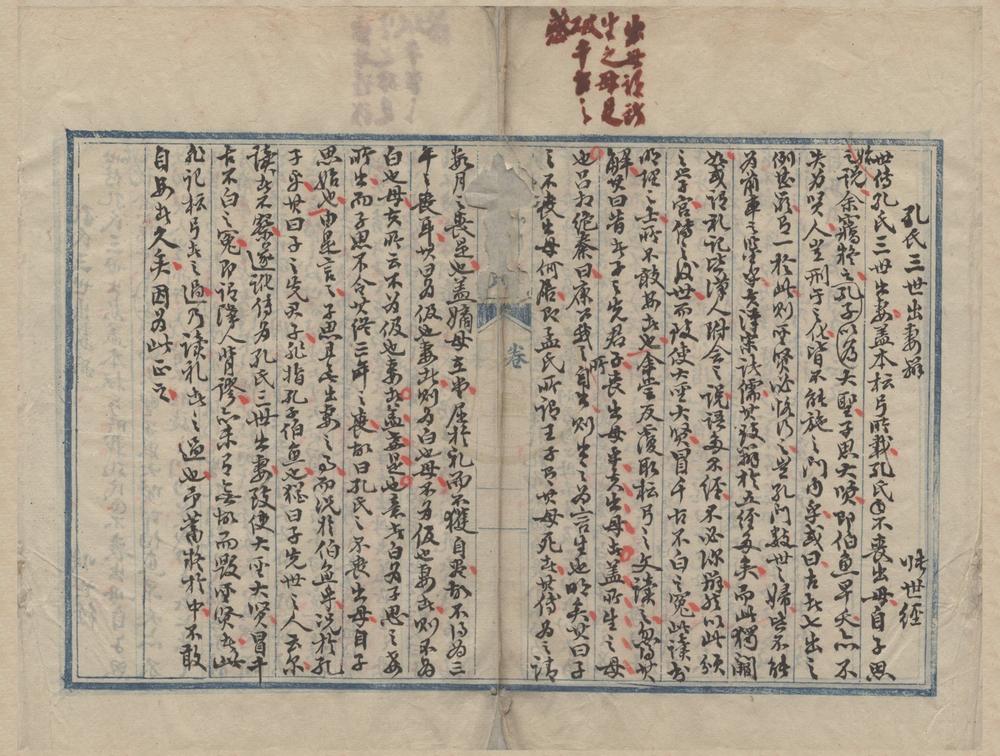 出母謂所
生之母足
破千古之
惑
孔氏三世出妻辯 張世經
世傳孔氏三世出妻蓋本檀弓所載孔氏之不喪出母自子思
始之說余竊疑之孔子以為大聖子思大賢即伯魚早夭亦不
失為賢人豈刑于之化皆不能施之門內乎或曰古者七出之
例甚嚴有一於此則聖賢必恪行之豈孔門數世之婦皆不能
為前車之鑒乎宋諸儒其致辯於五經多矣而此獨闕
如或謂禮記皆漢人附會之說語多不經不必深辯然以此頒
之學官傳之後世而致使大聖大賢冒千古不白之冤此讀書
明理之士所不敢安者也余嘗反覆取檀弓之文讀之忽得其
解其曰昔者子之先君子喪出母乎夫出母者蓋所生之母
也呂相絕秦曰康公我之所自出則出之為言生也明矣其曰子
之不喪出母何居即孟氏所謂王子有其母死者其傅為之請
數月之喪是也蓋嫡母在堂屈於禮而不獲自盡故不得為三
年之喪耳其曰為伋也妻者則為白也母不為伋也妻者則不為
白也母夫所云不為伋也妻者蓋妾是也意者白為子思之妾
所出而子思不令其終三年之喪故曰孔氏之不喪出母自子
思始也由是言之子思且無出妻之事而況於伯魚乎況於孔
子乎其曰子之先君子非指孔子伯魚也猶曰子先世之人云爾
讀者不察遂訛傳為孔氏三世出妻致使大聖大賢冒千
古不白之冤即謂漢人背謬亦未有無故而毀聖賢者此
非記檀弓者之過乃讀禮者之過也予蓄疑於中不敢
自安者久矣因為此正之
卷